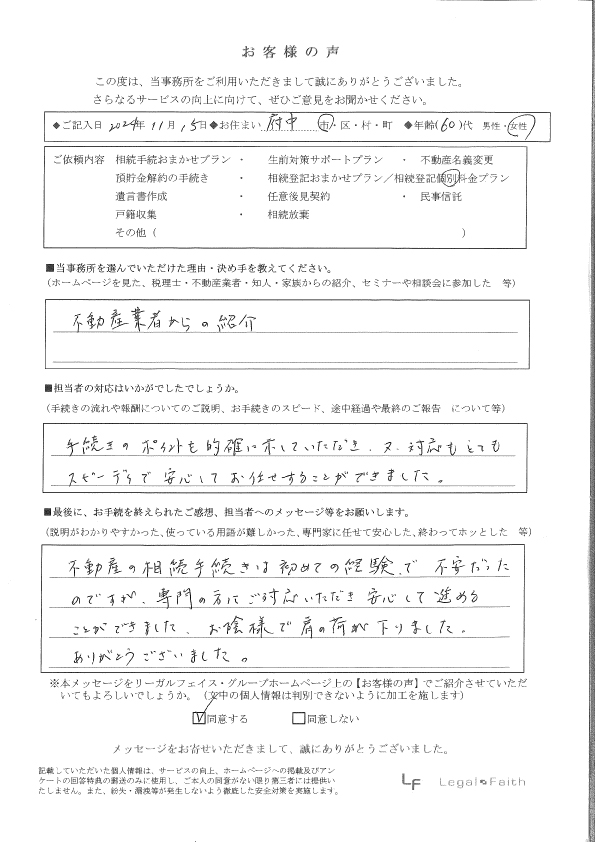 お客様の声
この度は、当事務所をご利用いただきまして誠にありがとうございました。
さらなるサービスの向上に向けて、ぜひご意見をお聞かせください。
◆ご記入日 2024年11月15日◆お住まい 府中 市・区・村・町 ◆年齢(60)代 男性・女性
ご依頼内容 相続手続おまかせプラン ・ 生前対策サポートプラン ・ 不動産名義変更
預貯金解約の手続き ・ 相続登記おまかせプラン/相続登記個別料金プラン
遺言書作成 ・ 任意後見契約 ・ 民事信託
戸籍収集 ・ 相続放棄
その他( )
■当事務所を選んでいただけた理由・決め手を教えてください。
(ホームページを見た、税理士・不動産業者・知人・家族からの紹介、セミナーや相談会に参加した 等)
不動産業者からの紹介
■担当者の対応はいかがでしたでしょうか。
(手続きの流れや報酬についてのご説明、お手続きのスピード、途中経過や最終のご報告 について等)
手続きのポイントを的確に示していただき、又、対応もとても
スピーディで安心してお任せすることができました。
■最後に、お手続を終えられたご感想、担当者へのメッセージ等をお願いします。
(説明がわかりやすかった、使っている用語が難しかった、専門家に任せて安心した、終わってホッとした 等)
不動産の相続手続きは初めての経験で不安だった
のですが、専門の方にご対応いただき安心して進める
ことができました。お陰様で肩の荷が下りました。
ありがとうございました。
※本メッセージをリーガルフェイス・グループホームページ上の【お客様の声】でご紹介させていただ
いてもよろしいでしょうか。(文中の個人情報は判別できないように加工を施します)
☑同意する □同意しない
メッセージをお寄せいただきまして、誠にありがとうございました。
記載していただいた個人情報は、サービスの向上、ホームページへの掲載及びアン
ケートの回答特典の郵送のみに使用し、ご本人の同意がない限り第三者には提供い
たしません。また、紛失・漏洩等が発生しないよう徹底した安全対策を実施します。
LF Legal Faith